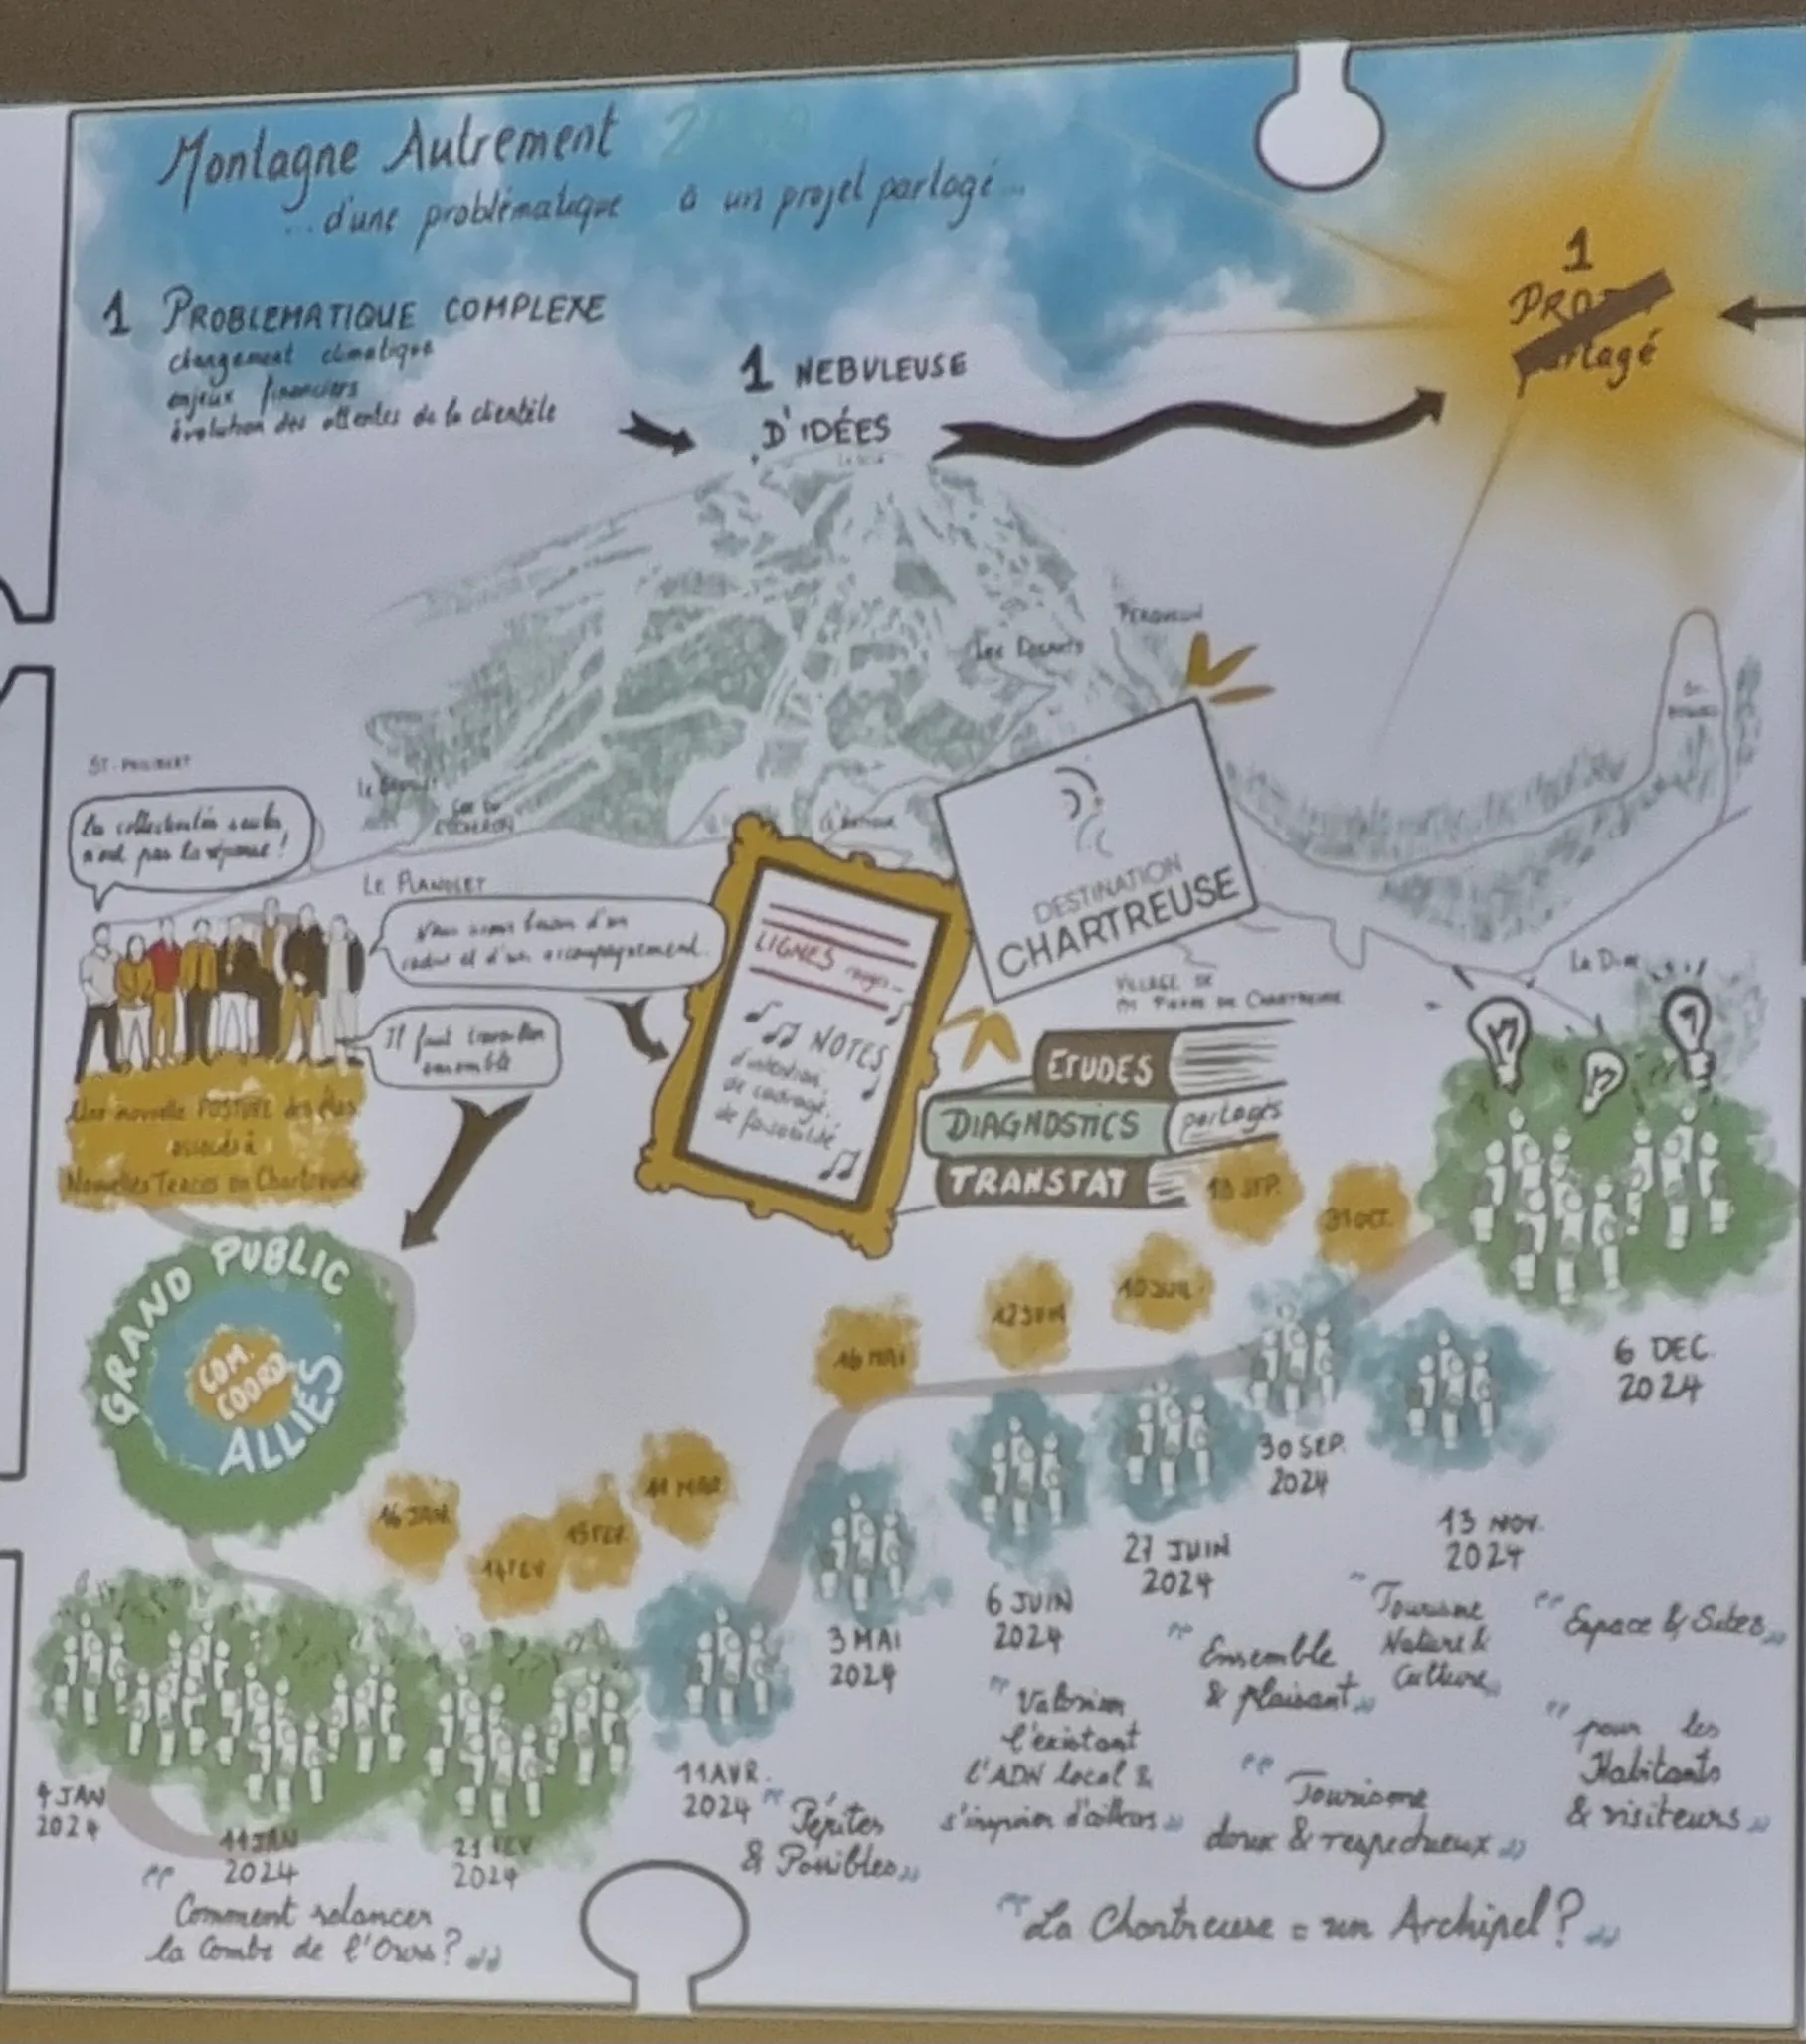 Montagne Autrement
...d'une problématique à un projet partagé...
1 PROBLEMATIQUE COMPLEXE
changement climatique
enjeux financiers
évolution des attentes de la clientèle
1 NEBULEUSE
D'IDÉES
1
PROJET
partagé
PERQUELIN
Les Essarts
ST-PHILIBERT
Les collectivités seules
n'ont pas la réponse!
COL DU
CUCHERON
LE PLANOLET
Nous avons besoin d'un
cadre et d'un accompagnement.
Il faut travailler
ensemble
Une nouvelle POSTURE des élus
associés à
Nouvelles Traces en Chartreuse
DESTINATION
CHARTREUSE
VILLAGE DE
ST PIERRE DE CHARTREUSE
La Diat
LIGNES rouges...
NOTES
d'intention,
de cadrage,
de faisabilité
ETUDES
DIAGNOSTICS partagés
TRANSTAT
GRAND PUBLIC
ALLIÉS
COM.
COORD.
18 SEP.
31 OCT.
10 JUIL.
12 JUIN
16 MAI
11 MAR.
15 FEV.
14 FEV
16 JAN.
6 DEC.
2024
30 SEP.
2024
13 NOV.
2024
27 JUIN
2024
6 JUIN
2024
3 MAI
2024
11 AVR.
2024
21 FEV
2024
11 JAN
2024
4 JAN
2024
"Comment relancer
la Combe de l'Ours?"
"Pépites
& Possibles"
"Valoriser
l'existant
l'ADN local &
s'inspirer d'ailleurs"
"Ensemble
& plaisant"
"Tourisme
Nature &
Culture"
"Espace & Sites"
"Tourisme
doux & respectueux"
"pour les
Habitants
& visiteurs"
"La Chartreuse = un Archipel?"